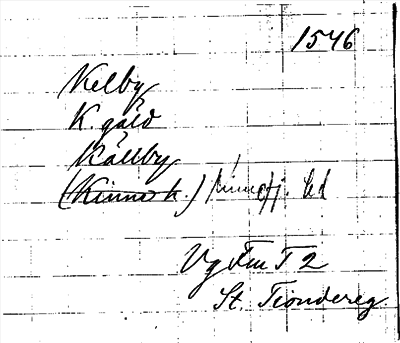 1546
Kelby
K. gäld
Källby
(Kinneh.) Kinnefj. hd
Vg Fm T 2
St. Tiondereg